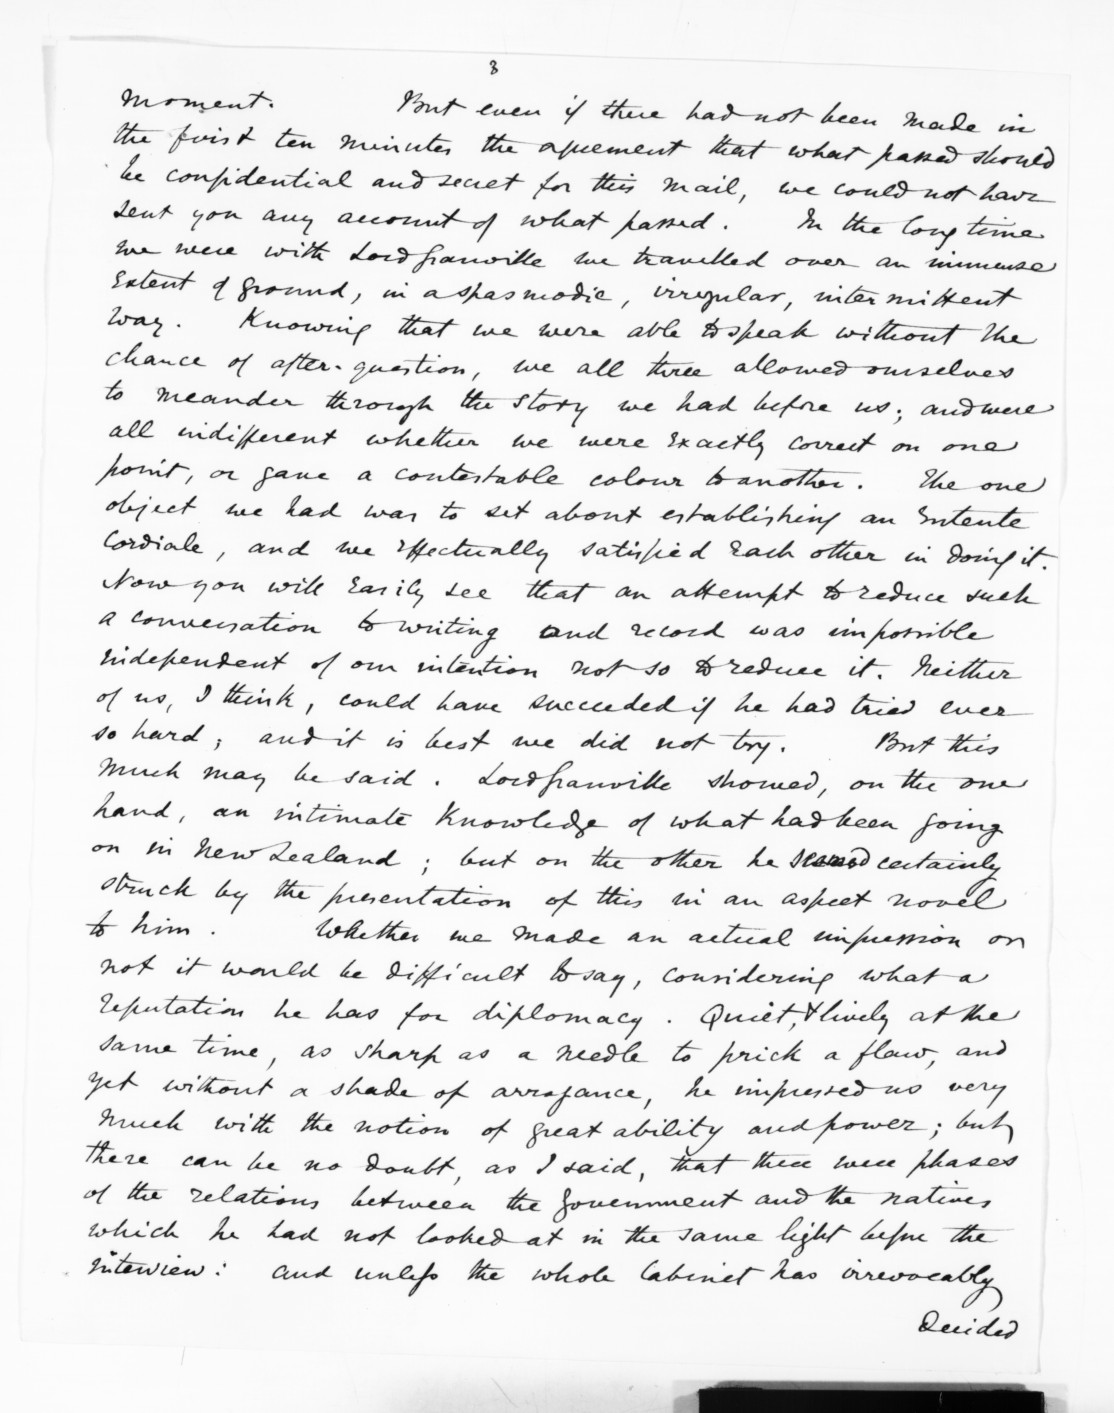 8
moment. But even if there had not been made in
the first ten minutes the agreement that what passed should
be confidential and secret for this mail, we could not have
sent you any account of what passed. In the long time
we were with Lord Granville we travelled over an immense
extent of ground, in a spasmodic, irregular, intermittent
way. Knowing that we were able to speak without the
chance of after-question, we all three allowed ourselves
to meander through the story we had before us; and were
all indifferent whether we were exactly correct on one
point, or gave a contestable colour to another. The one
object we had was to set about establishing an Entente
Cordiale, and we effectually satisfied each other in doing it.
Now you will easily see that an attempt to reduce such
a conversation to writing and record was impossible
independent of our intention not so to reduce it. Neither
of us, I think, could have succeeded if he had tried ever
so hard; and it is best we did not try. But this
much may be said. Lord Granville showed, on the one
hand, an intimate knowledge of what had been going
on in New Zealand; but on the other he seemed certainly
struck by the presentation of this in an aspect novel
to him. Whether we made an actual impression or
not it would be difficult to say, considering what a
reputation he has for diplomacy. Quiet, & lively at the
same time, as sharp as a needle to prick a flaw, and
yet without a shade of arrogance, he impressed us very
much with the notion of great ability and power; but
there can be no doubt, as I said, that there were phases
of the relations between the Government and the natives
which he had not looked at in the same light before the
interview: and unless the whole Cabinet has irrevocably
Decided